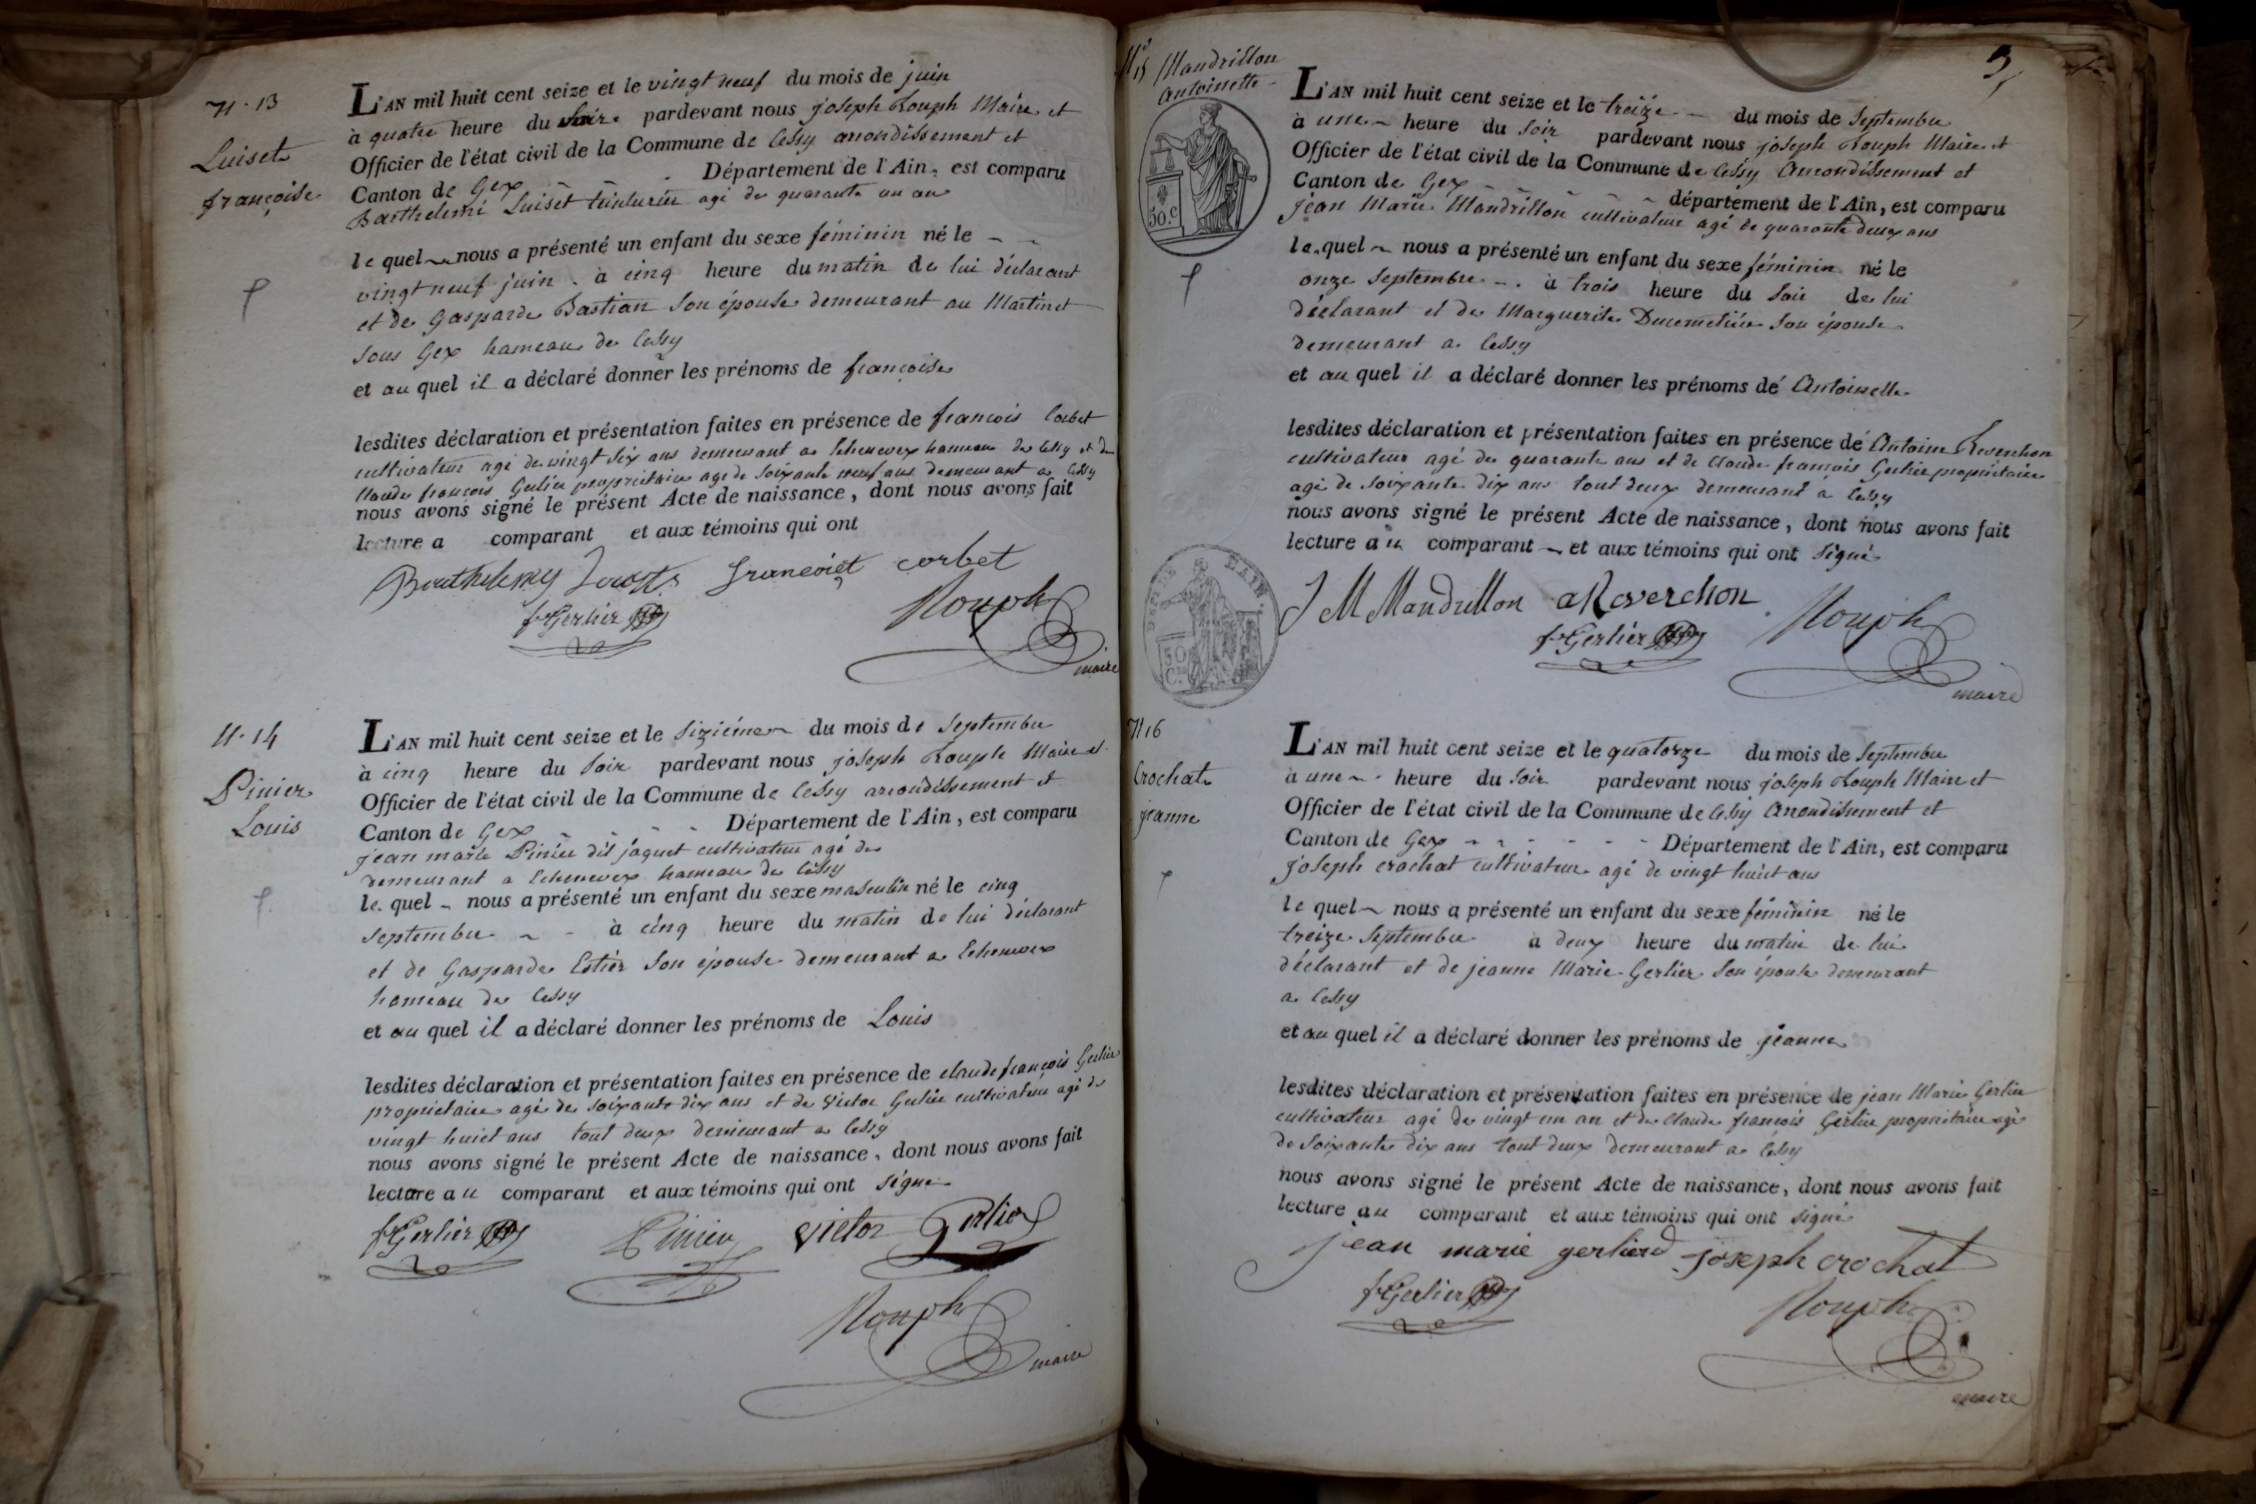 N. 13
Luiset
françoise
L'AN mil huit cent seize et le vingt neuf du mois de juin
à quatre heure du soire pardevant nous joseph Rouph Maire et
Officier de l'état civil de la Commune de Cessy arrondissement et
Canton de Gex Département de l'Ain, est comparu
Barthelemi Luiset teinturier agé de quarante un an
le quel nous a présenté un enfant du sexe féminin né le
vingt neuf juin à cinq heure du matin de lui déclarant
et de Gasparde Bastian son épouse demeurant au Martinet
sous Gex hameau de Cessy
et au quel il a déclaré donner les prénoms de françoise
lesdites déclaration et présentation faites en présence de francois Corbet
cultivateur agé de vingt six ans demeurant a Echenevex hameau de Cessy et de
Claude francois Gerlier proprietaire age de soixante neuf ans demeurant a Cessy
nous avons signé le présent Acte de naissance, dont nous avons fait
lecture a comparant et aux témoins qui ont
Barthelemy francoiet corbet
fs Gerlier
Rouph
maire
N. 14
Pinier
Louis
L'AN mil huit cent seize et le sizième du mois de Septembre
à cinq heure du soir pardevant nous joseph Rouph Maire et
Officier de l'état civil de la Commune de Cessy arrondissement et
Canton de Gex Département de l'Ain, est comparu
jean marie Pinier dit jaquet cultivateur agé de
demeurant a Echenevex hameau de Cessy
le quel nous a présenté un enfant du sexe masculin né le cinq
septembre à cinq heure du matin de lui déclarant
et de Gasparde Estier son épouse demeurant a Echenevex
hameau de Cessy
et au quel il a déclaré donner les prénoms de Louis
lesdites déclaration et présentation faites en présence de claude françois Gerlier
proprietaire agé de soixante dix ans et de Victor Gerlier cultivateur agé de
vingt huict ans tout deux demeurant a Cessy
nous avons signé le présent Acte de naissance, dont nous avons fait
lecture au comparant et aux témoins qui ont signé
fs Gerlier Pinier victor Gerlier
Rouph
maire
3
N° 15 Mandrillon
Antoinette
L'AN mil huit cent seize et le treize du mois de Septembre
à une heure du soir pardevant nous joseph Rouph Maire et
Officier de l'état civil de la Commune de Cessy Arrondissement et
Canton de Gex département de l'Ain, est comparu
jean Marie Mandrillon cultivateur agé de quarante deux ans
le quel nous a présenté un enfant du sexe féminin né le
onze Septembre à trois heure du soir de lui
déclarant et de Marguerite Ducemetière son épouse
demeurant a Cessy
et au quel il a déclaré donner les prénoms de Antoinette
lesdites déclaration et présentation faites en présence de Antoine Reverchon
cultivateur agé de quarante ans et de Claude françois Gerlier proprietaire
agé de soixante dix ans tout deux demeurant à Cessy
nous avons signé le présent Acte de naissance, dont nous avons fait
lecture au comparant et aux témoins qui ont signé
J M Mandrillon a Reverchon
fs Gerlier Rouph
maire
50. C
AIN
50
Cs
N 16
Crochat
jeanne
L'AN mil huit cent seize et le quatorze du mois de Septembre
à une heure du soir pardevant nous joseph Rouph Maire et
Officier de l'état civil de la Commune de Cessy Arrondissement et
Canton de Gex Département de l'Ain, est comparu
joseph crochat cultivateur agé de vingt huict ans
le quel nous a présenté un enfant du sexe féminin né le
treize Septembre a deux heure du matin de lui
déclarant et de jeanne Marie Gerlier son épouse demeurant
a Cessy
et au quel il a déclaré donner les prénoms de jeanne
lesdites déclaration et présentation faites en présence de jean Marie Gerlier
cultivateur agé de vingt un an et de Claude françois Gerlier proprietaire agé
de soixante dix ans tout deux demeurant a Cessy
nous avons signé le présent Acte de naissance, dont nous avons fait
lecture au comparant et aux témoins qui ont signé
jean marie gerlierd joseph crochat
fs Gerlier Rouph
maire